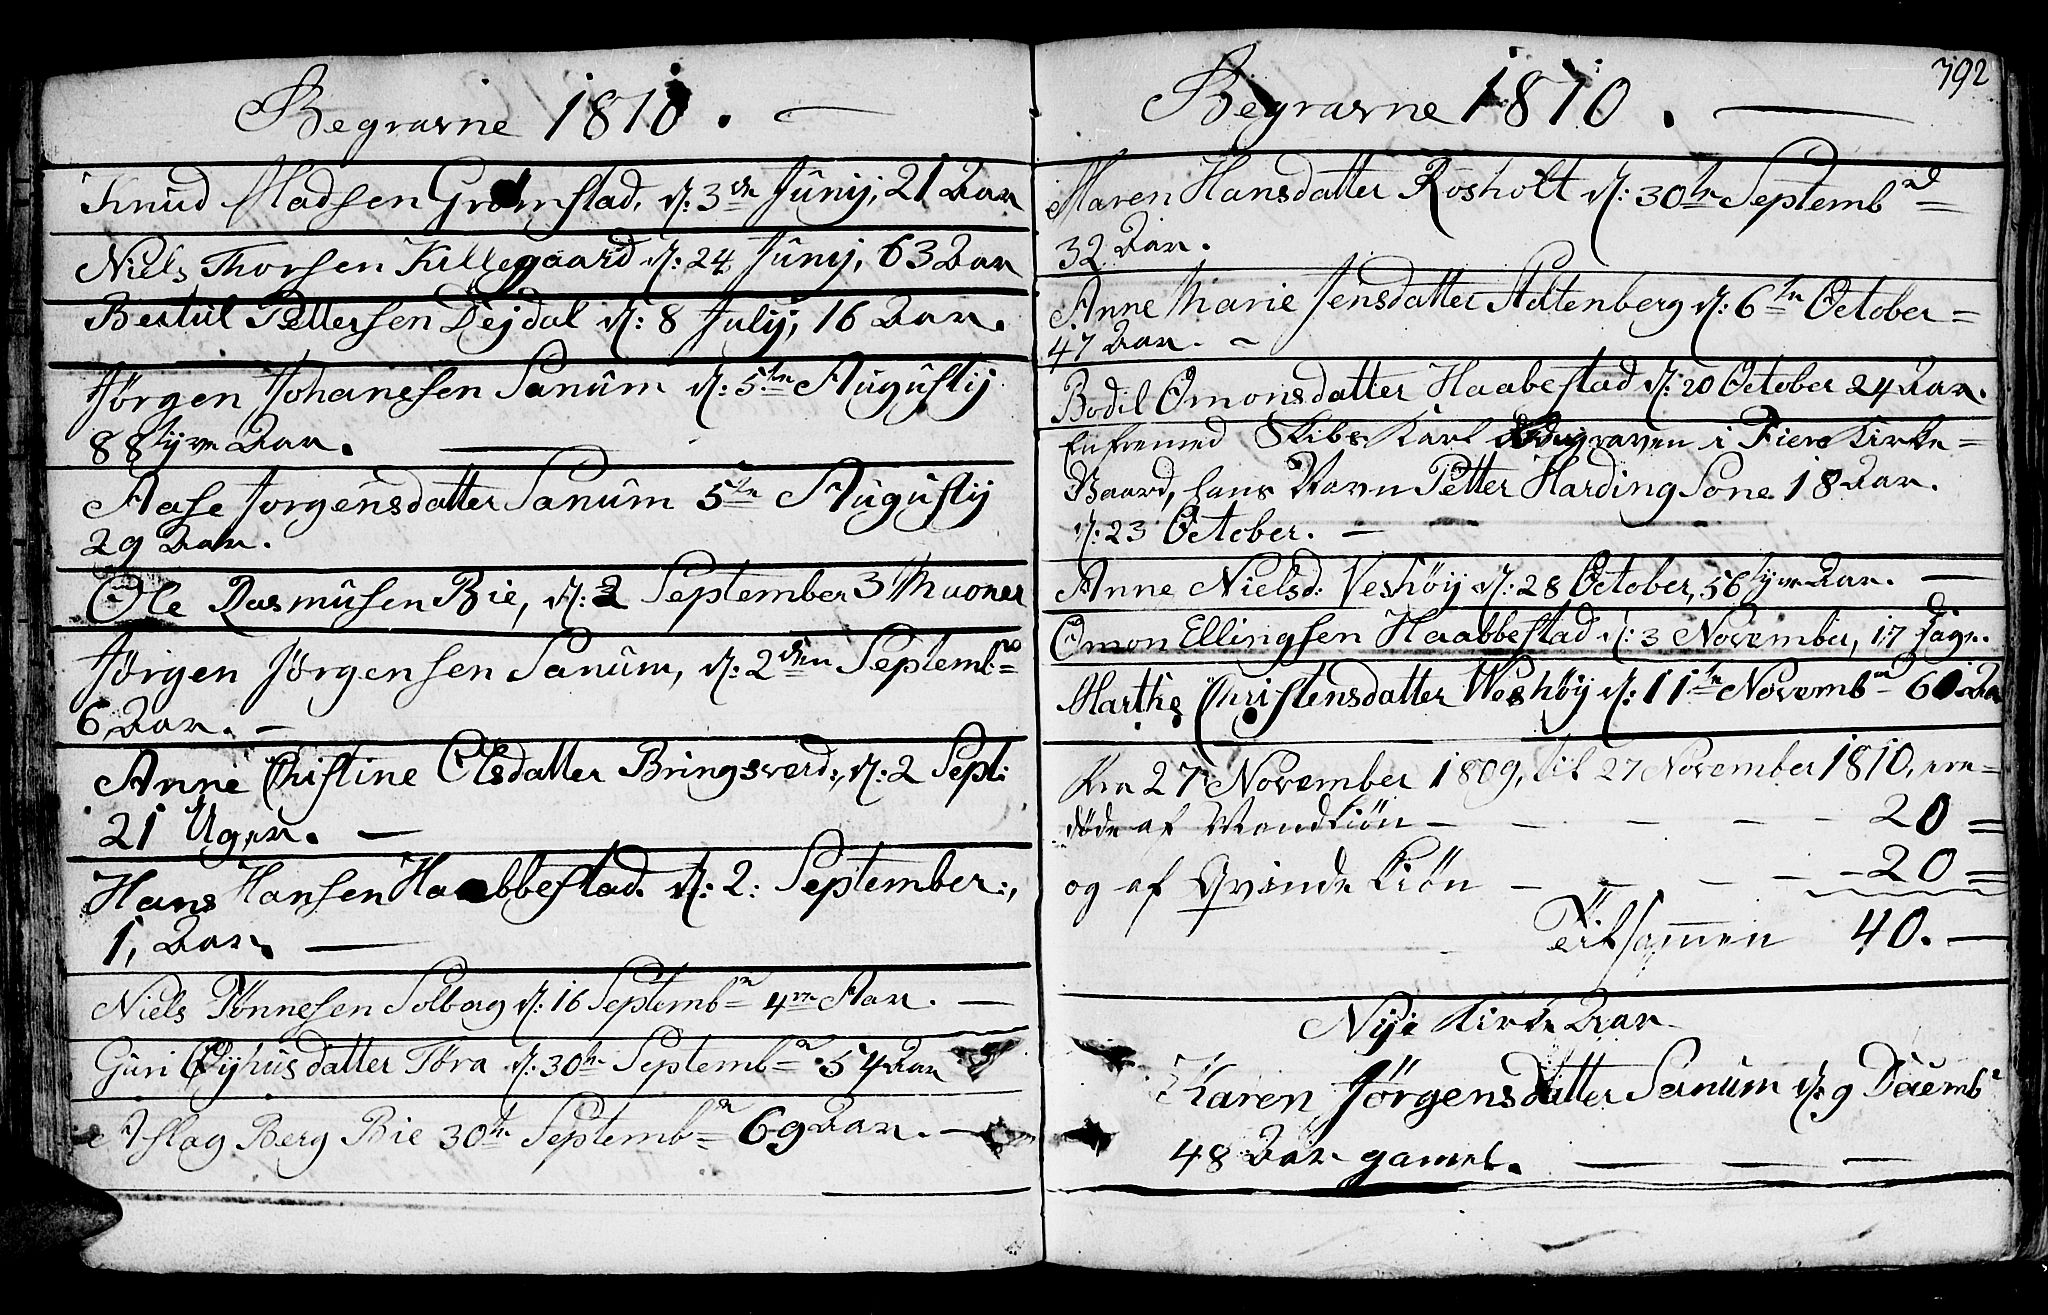 Begravne 1810. —
Knud Madsen Grømstad, d: 3de Junij, 21 Aar
Niels Thorsen Killegaard d: 24 Junij, 63 Aar
Bertul Pettersen Dejdal d: 8 Julij, 16 Aar.
Jørgen Johanesen Sanum d: 5te Augustij
88tyve Aar. —
Aase Jorgensdatter Sanum 5te Augustij
29 Aar.
Ole Rasmusen Bie, d: 2 September 3 Maaner
Jørgen Jørgensen Sanum, d: 2den Septembr
6 Aar. —
Anne Christine Olsdatter Bringsverd:, d: 2 Sept:
21 Uger. —
Hans Hansen Haabbestad. d: 2: September:,
1, Aar. —
Niels Tønnesen Solborg d: 16 Septembr 4re Aar. —
Guri Eyhusdatter Tøra d: 30te Septembr: 54 Aar
Aslag Berg Bie 30te Septembr 69 Aar. —
792
Begravne 1810. —
Maren Hansdatter Rosholt d: 30te Septembr
32 Aar.
Anne Marie Jensdatter Stutenberg d: 6te October =
47 Aar. —
Bodil Omonsdatter Haabestad d: 20 October 24 Aar.
En fremed Skibs Karl begraven i Fiere Kirke =
Gaard, hans Navn Petter Harding Sone 18 Aar.
d: 23 October. —
Anne Nielsd: Veshöy d: 28 October, 56tyve Aar. —
Omon Ellingsen Haabbestad d: 3 November, 17 Dage.
Marthe Christensdatter Weshöy d: 11te Novembr 60 Aar
Fra 27 November 1809, til 27 November 1810, ere =
døde af Mandkiön — — — — — 20 =
og af Qvindekiön — — — — — 20 =
Tilsamen 40. —
Nye Kirke Aar
Karen Jørgensdatter Sanum d: 9 Decembr
48 Aar gamel. — — —